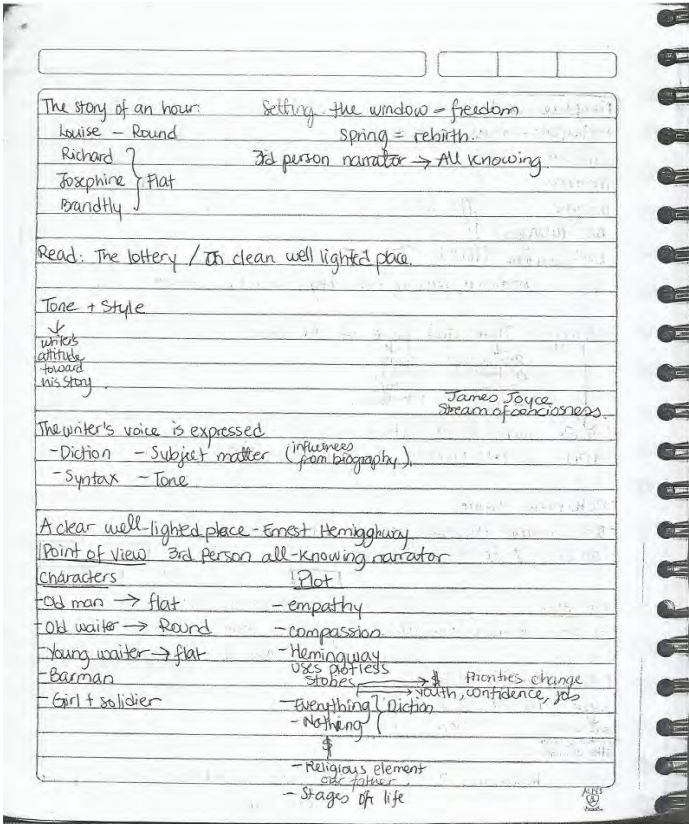 The story of an hour: Setting: the window = freedom
Louise - Round spring = rebirth.
Richard 3rd person narrator → All knowing.
Josephine } Flat
Brandtly
Read: The lottery / clean well lighted place.
Tone + Style
↓
writer's
attitude
toward
his story.
James Joyce
Stream of conciosness.
The writer's voice is expressed
- Diction - Subject matter (influences from biography).
- Syntax - Tone
A clear well-lighted place - Ernest Hemigghury
Point of View 3rd Person all-knowing narrator
Characters Plot
- Old man → flat - empathy
- Old waiter → Round - compassion
- Young waiter → flat - Hemingway
uses plotless
- Barman stories → $ Priorities change
→ Youth, confidence, job
- Girl + solidier - Everything } Diction
- Nothing
$
- Religious element
our father
- Stages of life